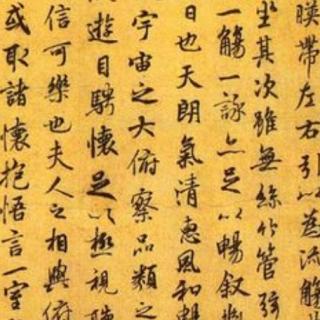 暎帶左右引以為流觴
坐其次雖無絲竹管弦
一觴一詠亦足以暢敘幽
日也天朗氣清惠風和暢
宇宙之大俯察品類之
遊目騁懷足以極視聽
信可樂也夫人之相與俯
或取諸懷抱悟言一室